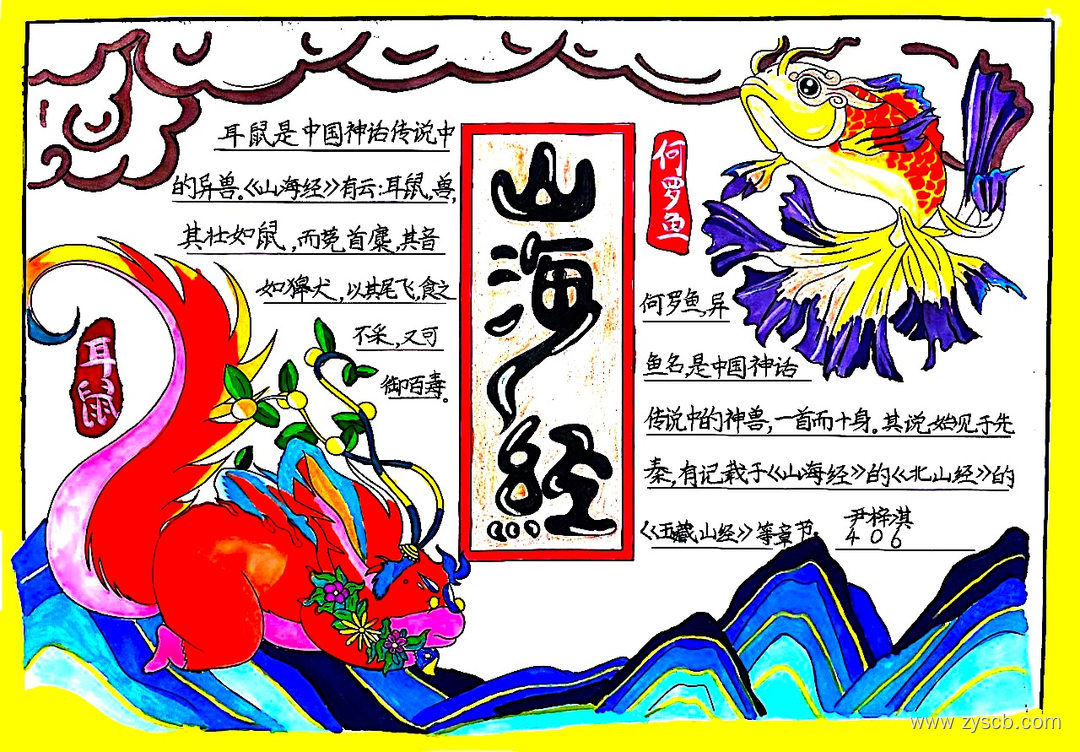 山海经
耳鼠是中国神话传说中
的异兽。《山海经》有云:耳鼠,兽,
其壮如鼠,而菟首麋,其音
如獆犬,以其尾飞,食之
不采,又可
御百毒。
耳鼠
何罗鱼
何罗鱼,异
鱼名,是中国神话
传说中的神兽,一首而十身。其说始见于先
秦,有记载于《山海经》的《北山经》的
《五藏山经》等章节。
尹梓淇
406
www.zyscb.com